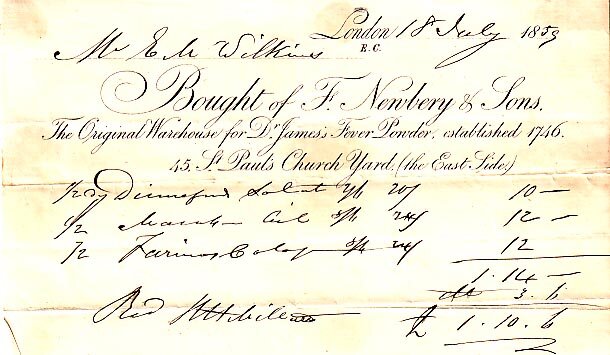 London 18 July 1859
E.C.
Mr E M Wilkins
Bought of F. Newbery & Sons.
The Original Warehouse for Dr James's Fever Powder, established 1746.
45, St Paul's Church Yard, (the East Side)
1/2 Dinnefords 20/ 10 –
1/2 24/ 12 –
1/2 Farina Cologne 24/ 12
1 . 14 –
3 . 6
£ 1 . 10 . 6